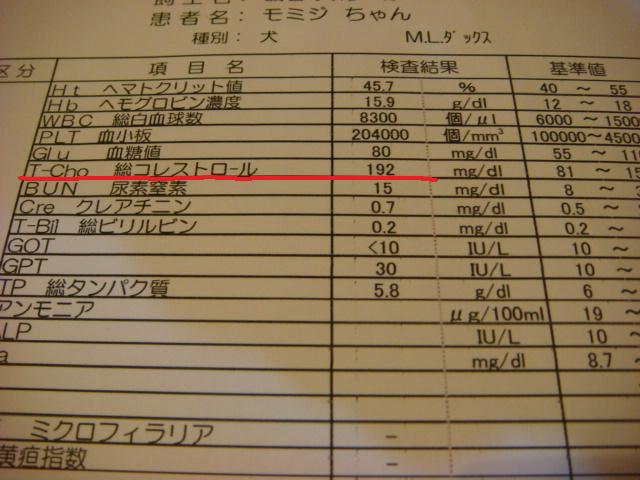 患者名: モミジ ちゃん
種別: 犬 M.L.ﾀﾞｯｸｽ
区分 項目名 検査結果 基準値
Ht ヘマトクリット値 45.7 % 40 ～ 55
Hb ヘモグロビン濃度 15.9 g/dl 12 ～ 18
WBC 総白血球数 8300 個/μl 6000 ～ 1500
PLT 血小板 204000 個/mm³ 100000～4500
Glu 血糖値 80 mg/dl 55 ～ 11
T-Cho 総コレストロール 192 mg/dl 81 ～ 15
BUN 尿素窒素 15 mg/dl 8 ～
Cre クレアチニン 0.7 mg/dl 0.5 ～
T-Bil 総ビリルビン 0.2 mg/dl 0.2 ～
GOT <10 IU/L 10 ～
GPT 30 IU/L 10 ～
TP 総タンパク質 5.8 g/dl 6 ～
アンモニア μg/100ml 19 ～
ALP IU/L 10 ～
a mg/dl 8.7 ～
ミクロフィラリア －
黄疸指数 －